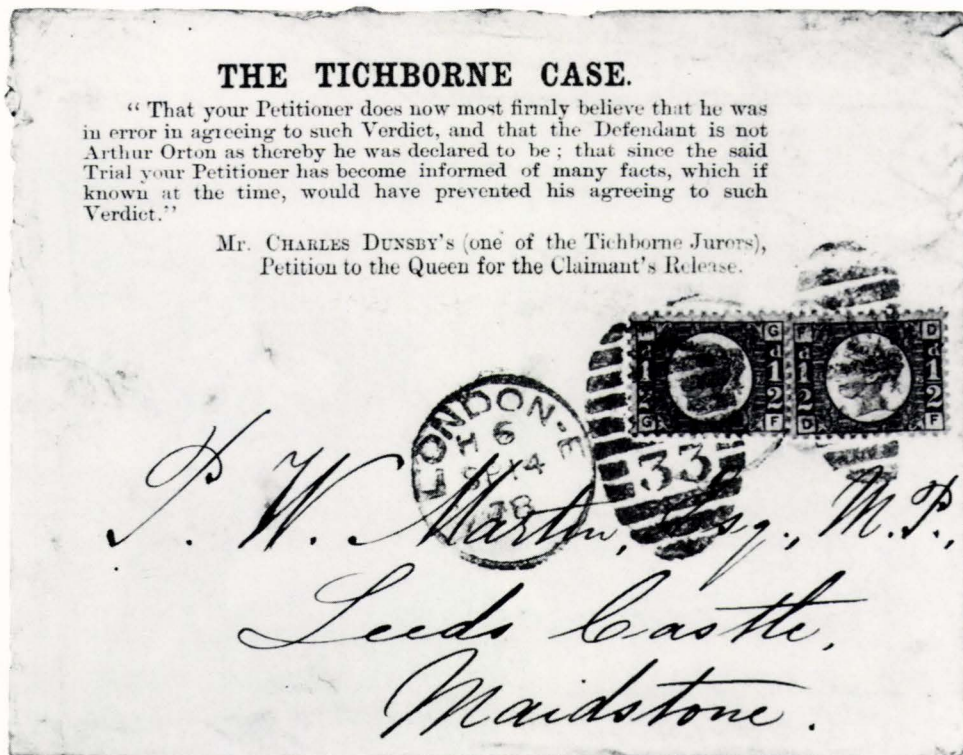 THE TICHBORNE CASE.
“ That your Petitioner does now most firmly believe that he was
in error in agreeing to such Verdict, and that the Defendant is not
Arthur Orton as thereby he was declared to be ; that since the said
Trial your Petitioner has become informed of many facts, which if
known at the time, would have prevented his agreeing to such
Verdict.”
Mr. CHARLES DUNSBY'S (one of the Tichborne Jurors),
Petition to the Queen for the Claimant's Release.
G F D
d 1/2 d 1/2 d 1/2
G F D F
LONDON·E
6
SP 14
78
33
P. W. Martin, Esq., M.P.,
Leeds Castle,
Maidstone.